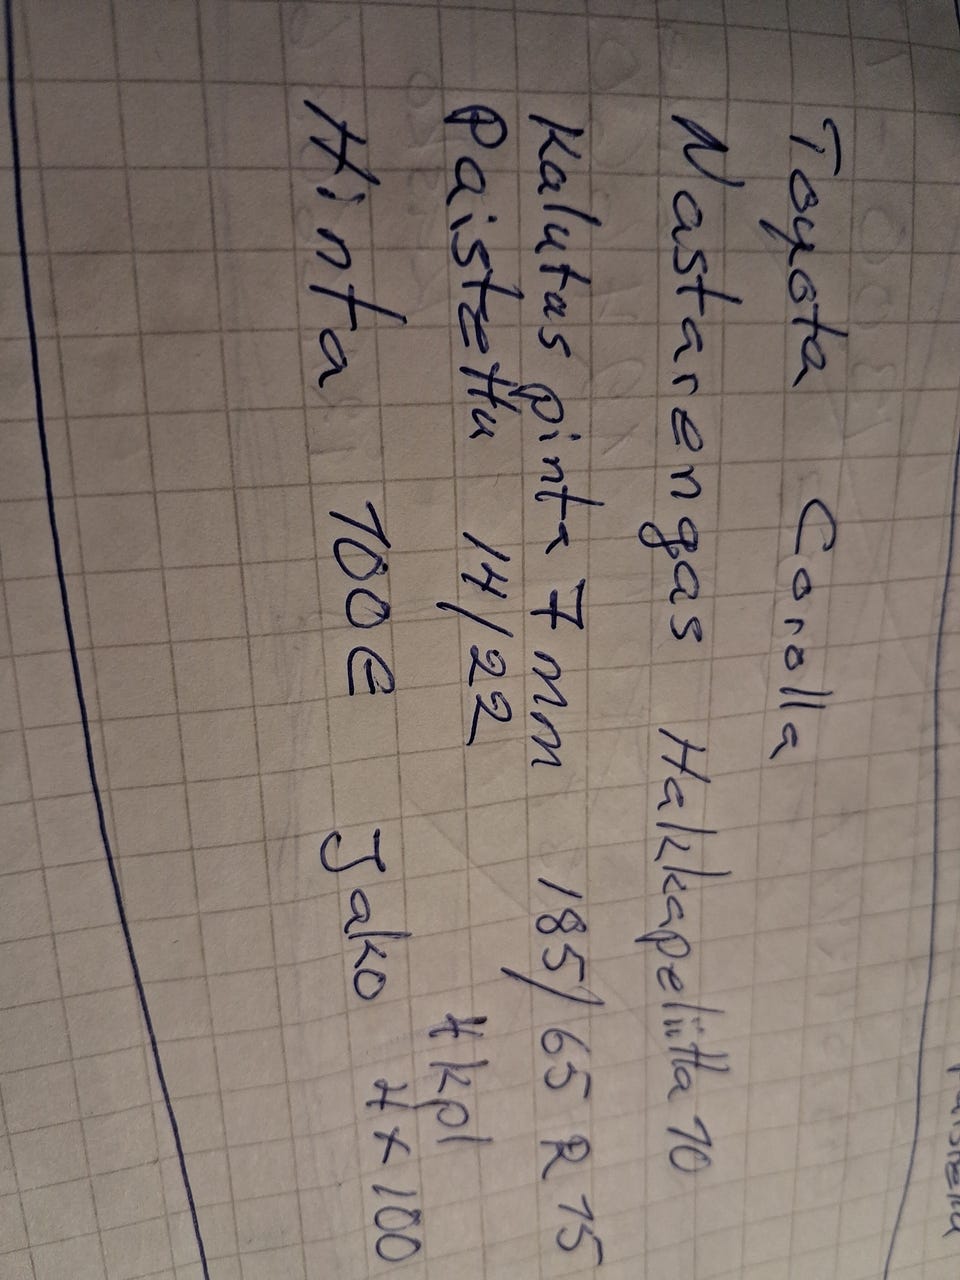 Toyota Corolla
Nastarengas Hakkapeliitta 10
Kalutus pinta 7 mm 185/65 R 15
Paistettu 14/22 4 kpl
Hinta 100€ Jako 4x100